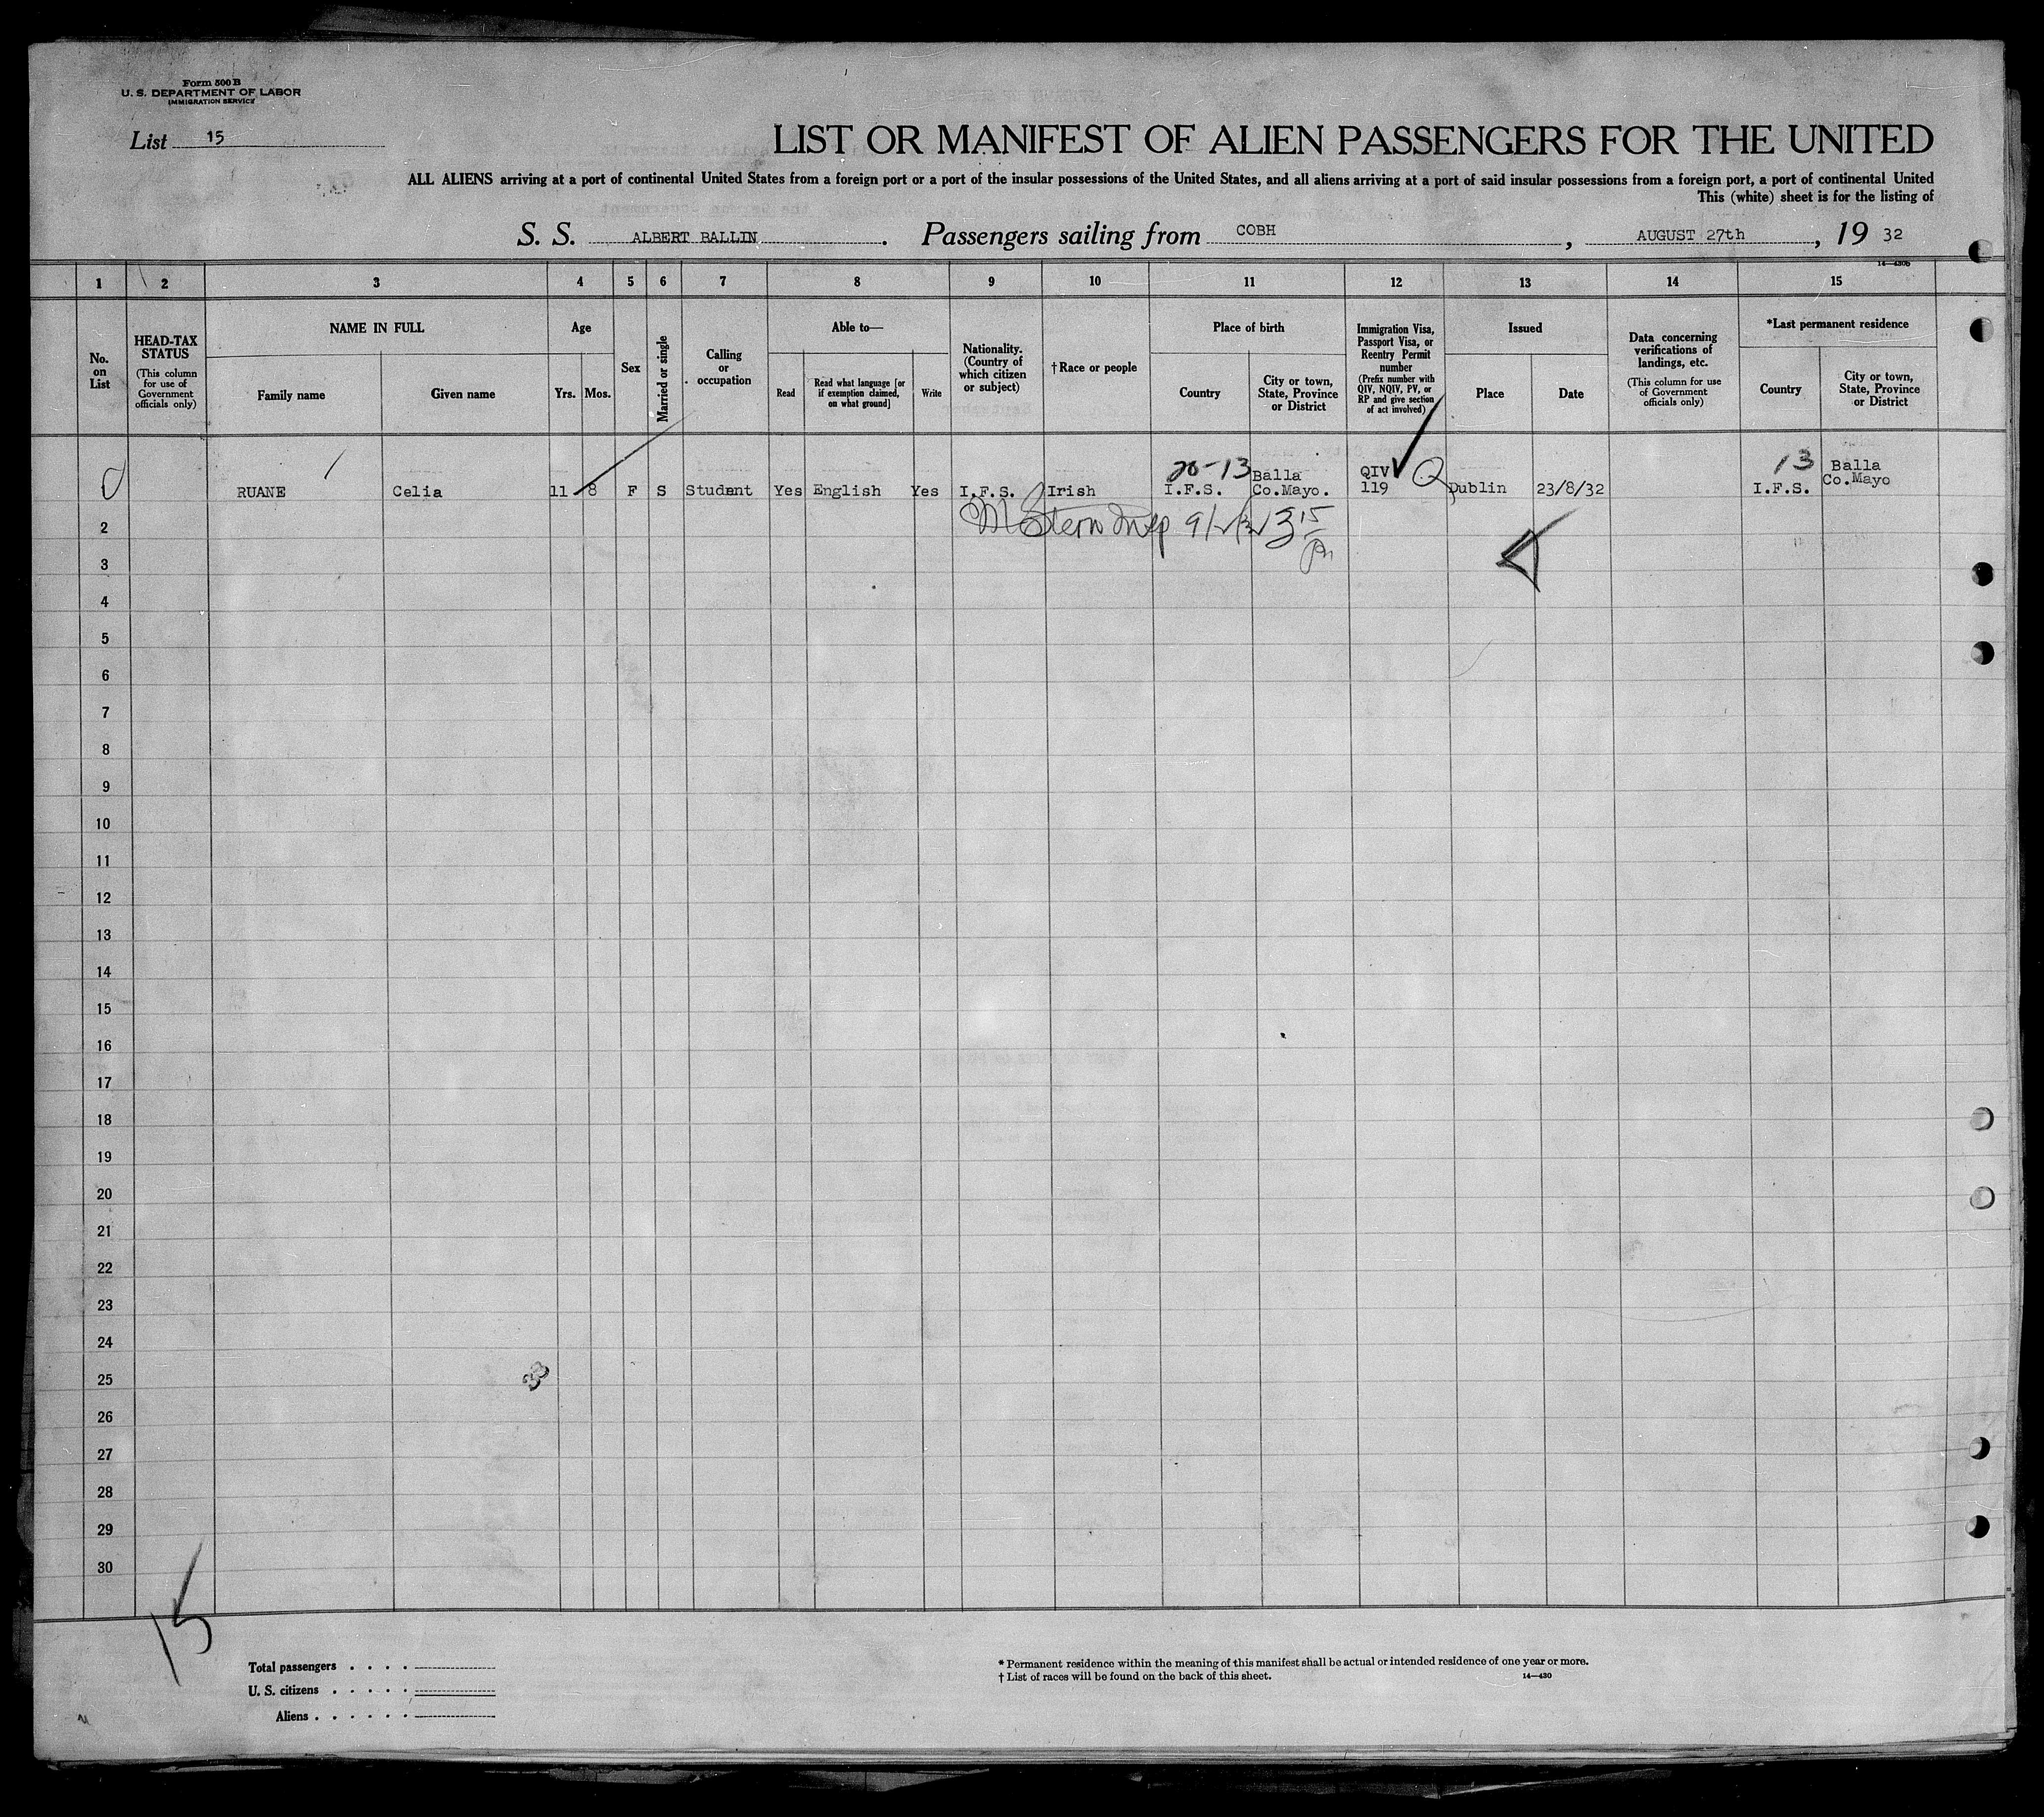 Form 500 B
U. S. DEPARTMENT OF LABOR
IMMIGRATION SERVICE
List 15
LIST OR MANIFEST OF ALIEN PASSENGERS FOR THE UNITED
ALL ALIENS arriving at a port of continental United States from a foreign port or a port of the insular possessions of the United States, and all aliens arriving at a port of said insular possessions from a foreign port, a port of continental United
This (white) sheet is for the listing of
S. S. ALBERT BALLIN. Passengers sailing from COBH, AUGUST 27th, 19 32
1 2 3 4 5 6 7 8 9 10 11 12 13 14 15
No. on List
HEAD-TAX STATUS
(This column for use of Government officials only)
NAME IN FULL
Family name
Given name
Age
Yrs. Mos.
Sex
Married or single
Calling or occupation
Able to—
Read
Read what language [or if exemption claimed, on what ground]
Write
Nationality. (Country of which citizen or subject)
† Race or people
Place of birth
Country
City or town, State, Province or District
Immigration Visa, Passport Visa, or Reentry Permit number
(Prefix number with QIV, NQIV, PV, or RP and give section of act involved)
Issued
Place
Date
Data concerning verifications of landings, etc.
(This column for use of Government officials only)
*Last permanent residence
Country
City or town, State, Province or District
20-13 Balla QIV Q 13 Balla
RUANE Celia 11 8 F S Student Yes English Yes I.F.S. Irish I.F.S. Co.Mayo. 119 Dublin 23/8/32 I.F.S. Co.Mayo
2
3
4
5
6
7
8
9
10
11
12
13
14
15
16
17
18
19
20
21
22
23
24
25
26
27
28
29
30
33
15
Total passengers . . . .
U. S. citizens . . . . .
Aliens . . . . . .
* Permanent residence within the meaning of this manifest shall be actual or intended residence of one year or more.
† List of races will be found on the back of this sheet.
14—430